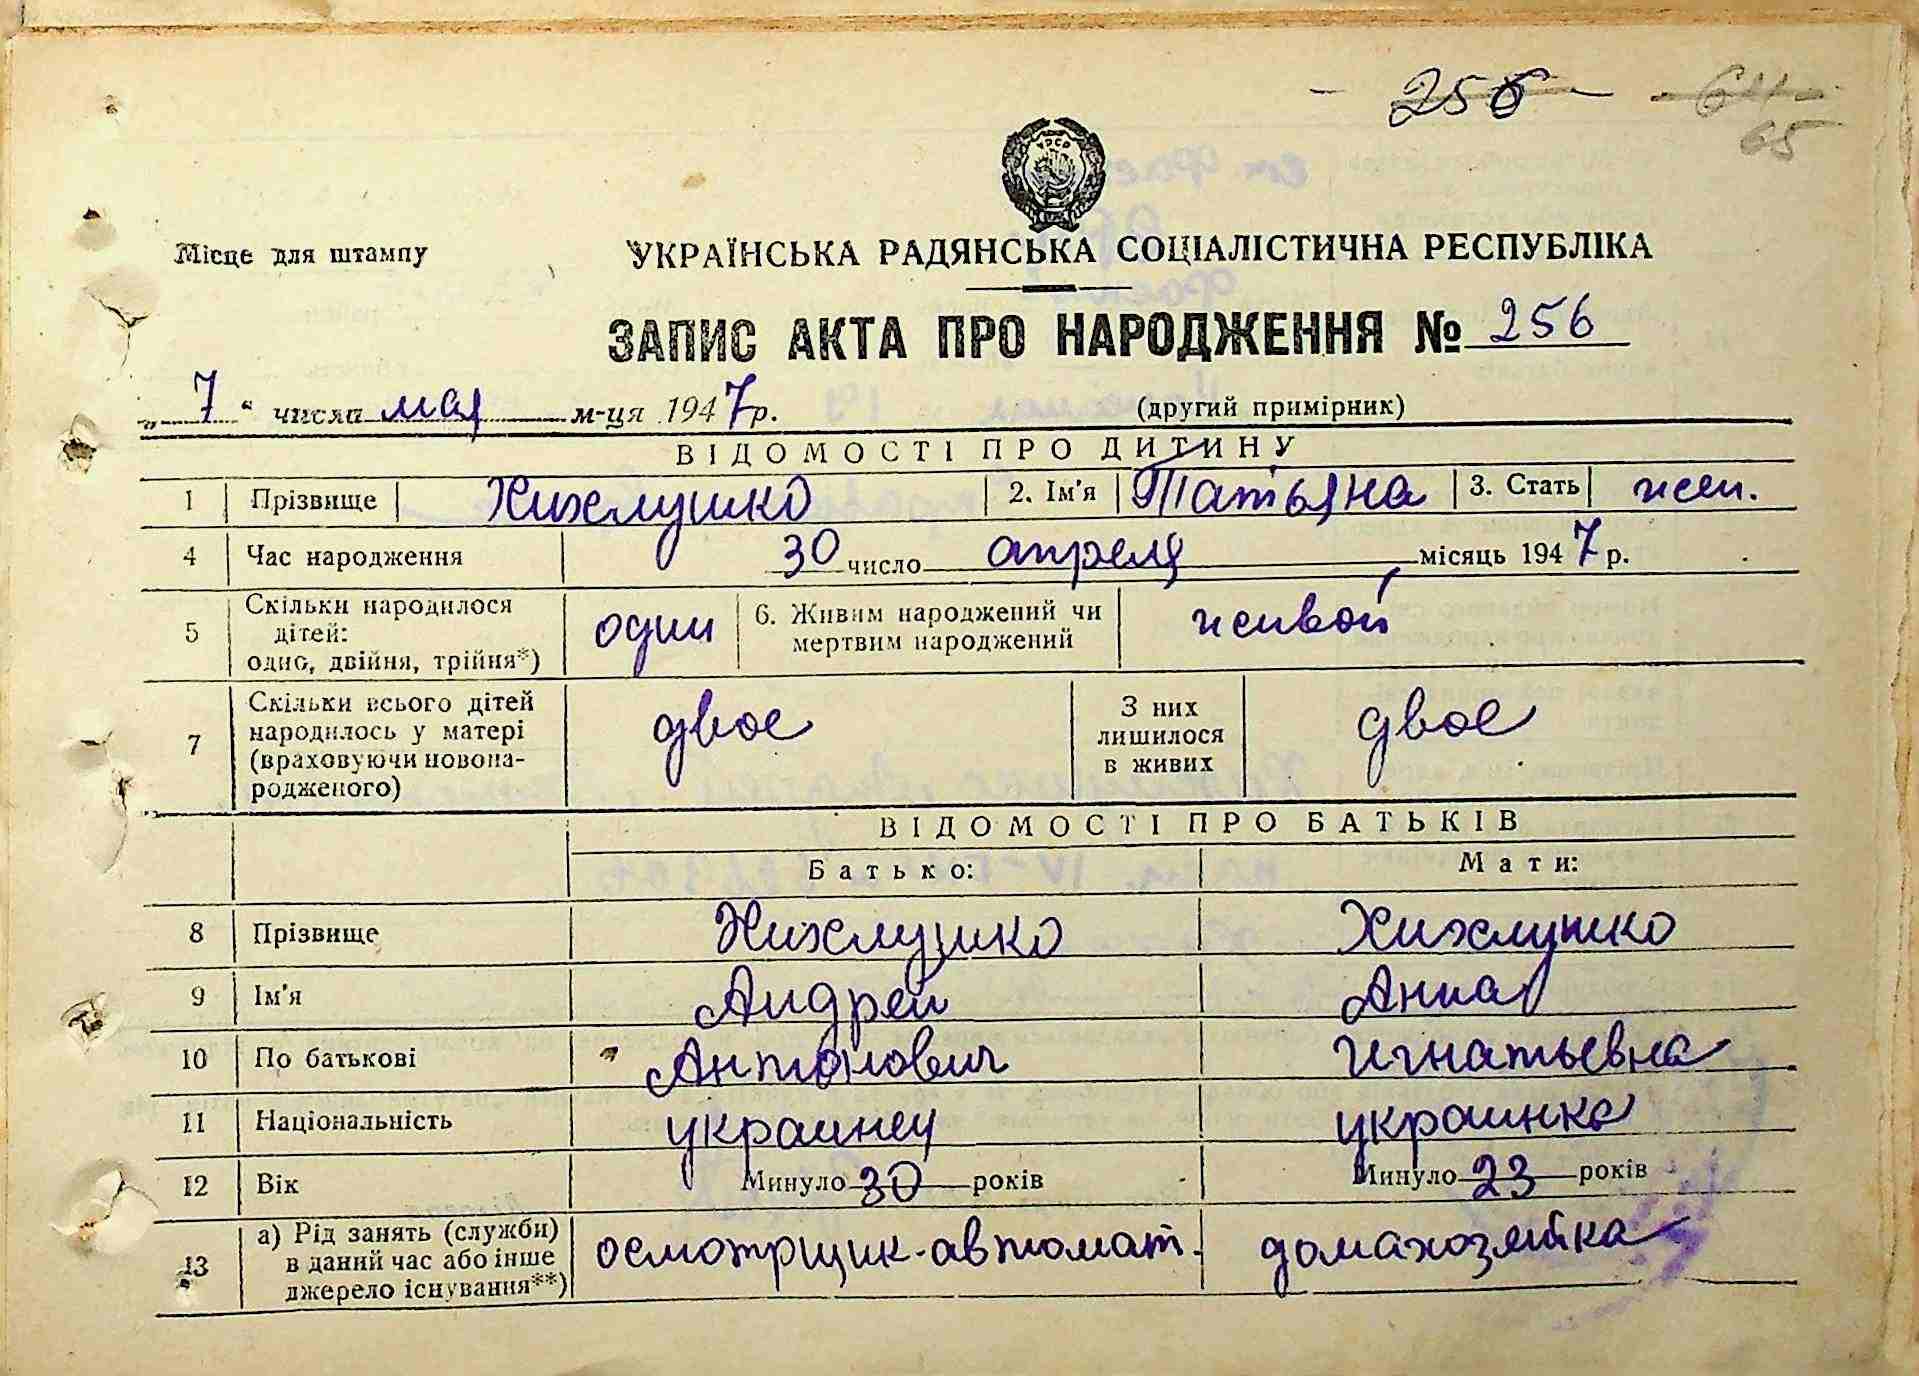 - 256 - - 64 -
65
УРСР
Місце для штампу
УКРАЇНСЬКА РАДЯНСЬКА СОЦІАЛІСТИЧНА РЕСПУБЛІКА
ЗАПИС АКТА ПРО НАРОДЖЕННЯ № 256
„ 7 “ числа мая м-ця 1947 р. (другий примірник)
ВІДОМОСТІ ПРО ДИТИНУ
1 Прізвище Хихлушко 2. Ім'я Татьяна 3. Стать жен.
4 Час народження 30 число апреля місяць 1947 р.
5 Скільки народилося
дітей:
одно, двійня, трійня*) один 6. Живим народжений чи
мертвим народжений живой
7 Скільки всього дітей
народилось у матері
(враховуючи новона-
родженого) двое З них
лишилося
в живих двое
ВІДОМОСТІ ПРО БАТЬКІВ
Батько: Мати:
8 Прізвище Хихлушко Хихлушко
9 Ім'я Андрей Анна
10 По батькові Антонович Игнатьевна
11 Національність украинец украинка
12 Вік Минуло 30 років Минуло 23 років
13 а) Рід занять (служби)
в даний час або інше
джерело існування**) осмотрщик-автомат. домахозяйка